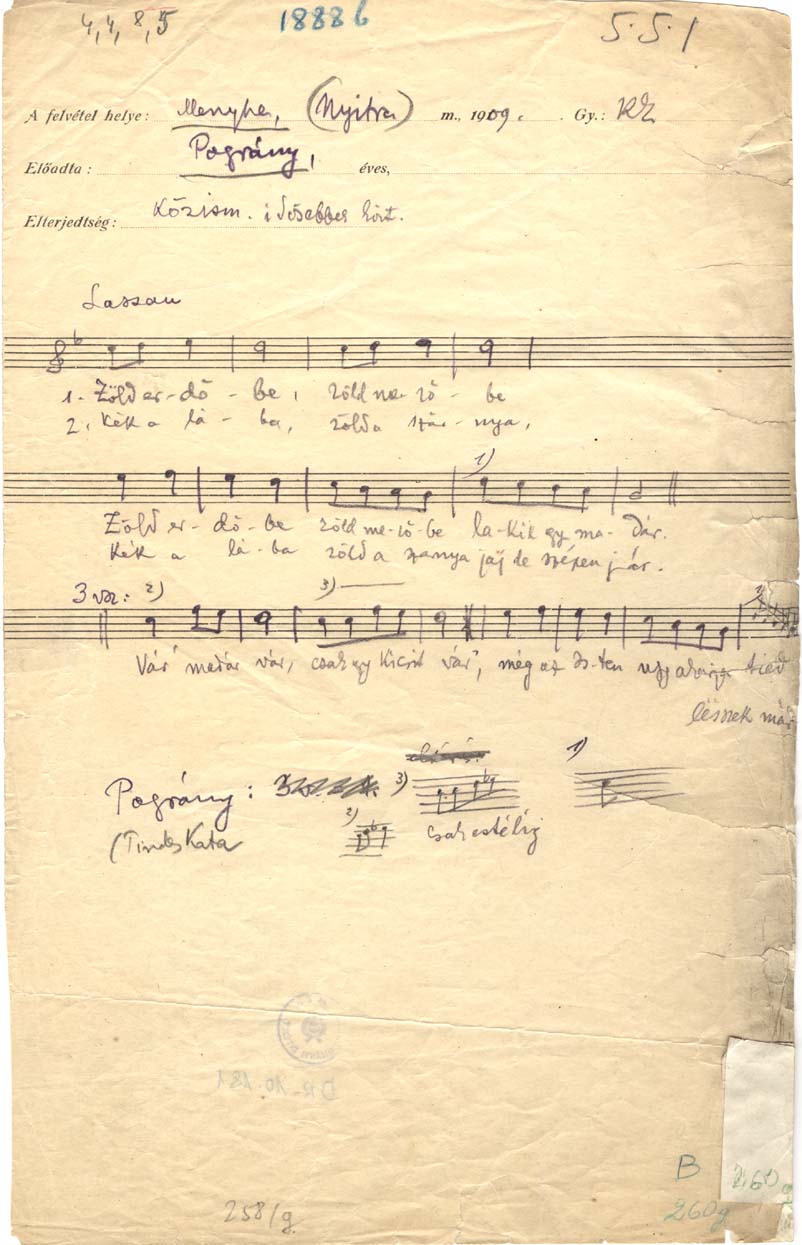 4,4,8,5 18886 5.5.1
A felvétel helye: Menyhe, (Nyitra) m., 1909. Gy.: KZ
Előadta: Pográny, éves,
Elterjedtség: Közism. idősebbek közt.
Lassan
1. Zöld er-dő-be, zöld me-ző-be
2. Kék a lá-ba, zöld a szár-nya,
1)
Zöld er-dő-be zöld me-ző-be la-kik egy ma-dár.
Kék a lá-ba zöld a szanya jaj de szépen jár.
3 vsz: 2) 3)
Vár madár vár, csak egy kicsit vár, még az Is-ten úgy akarja tied
lësznek már
Pográny: 3) 1)
(Tindes Kata 2) csak estélig
DR-10.181
B 260g
260g
258/g